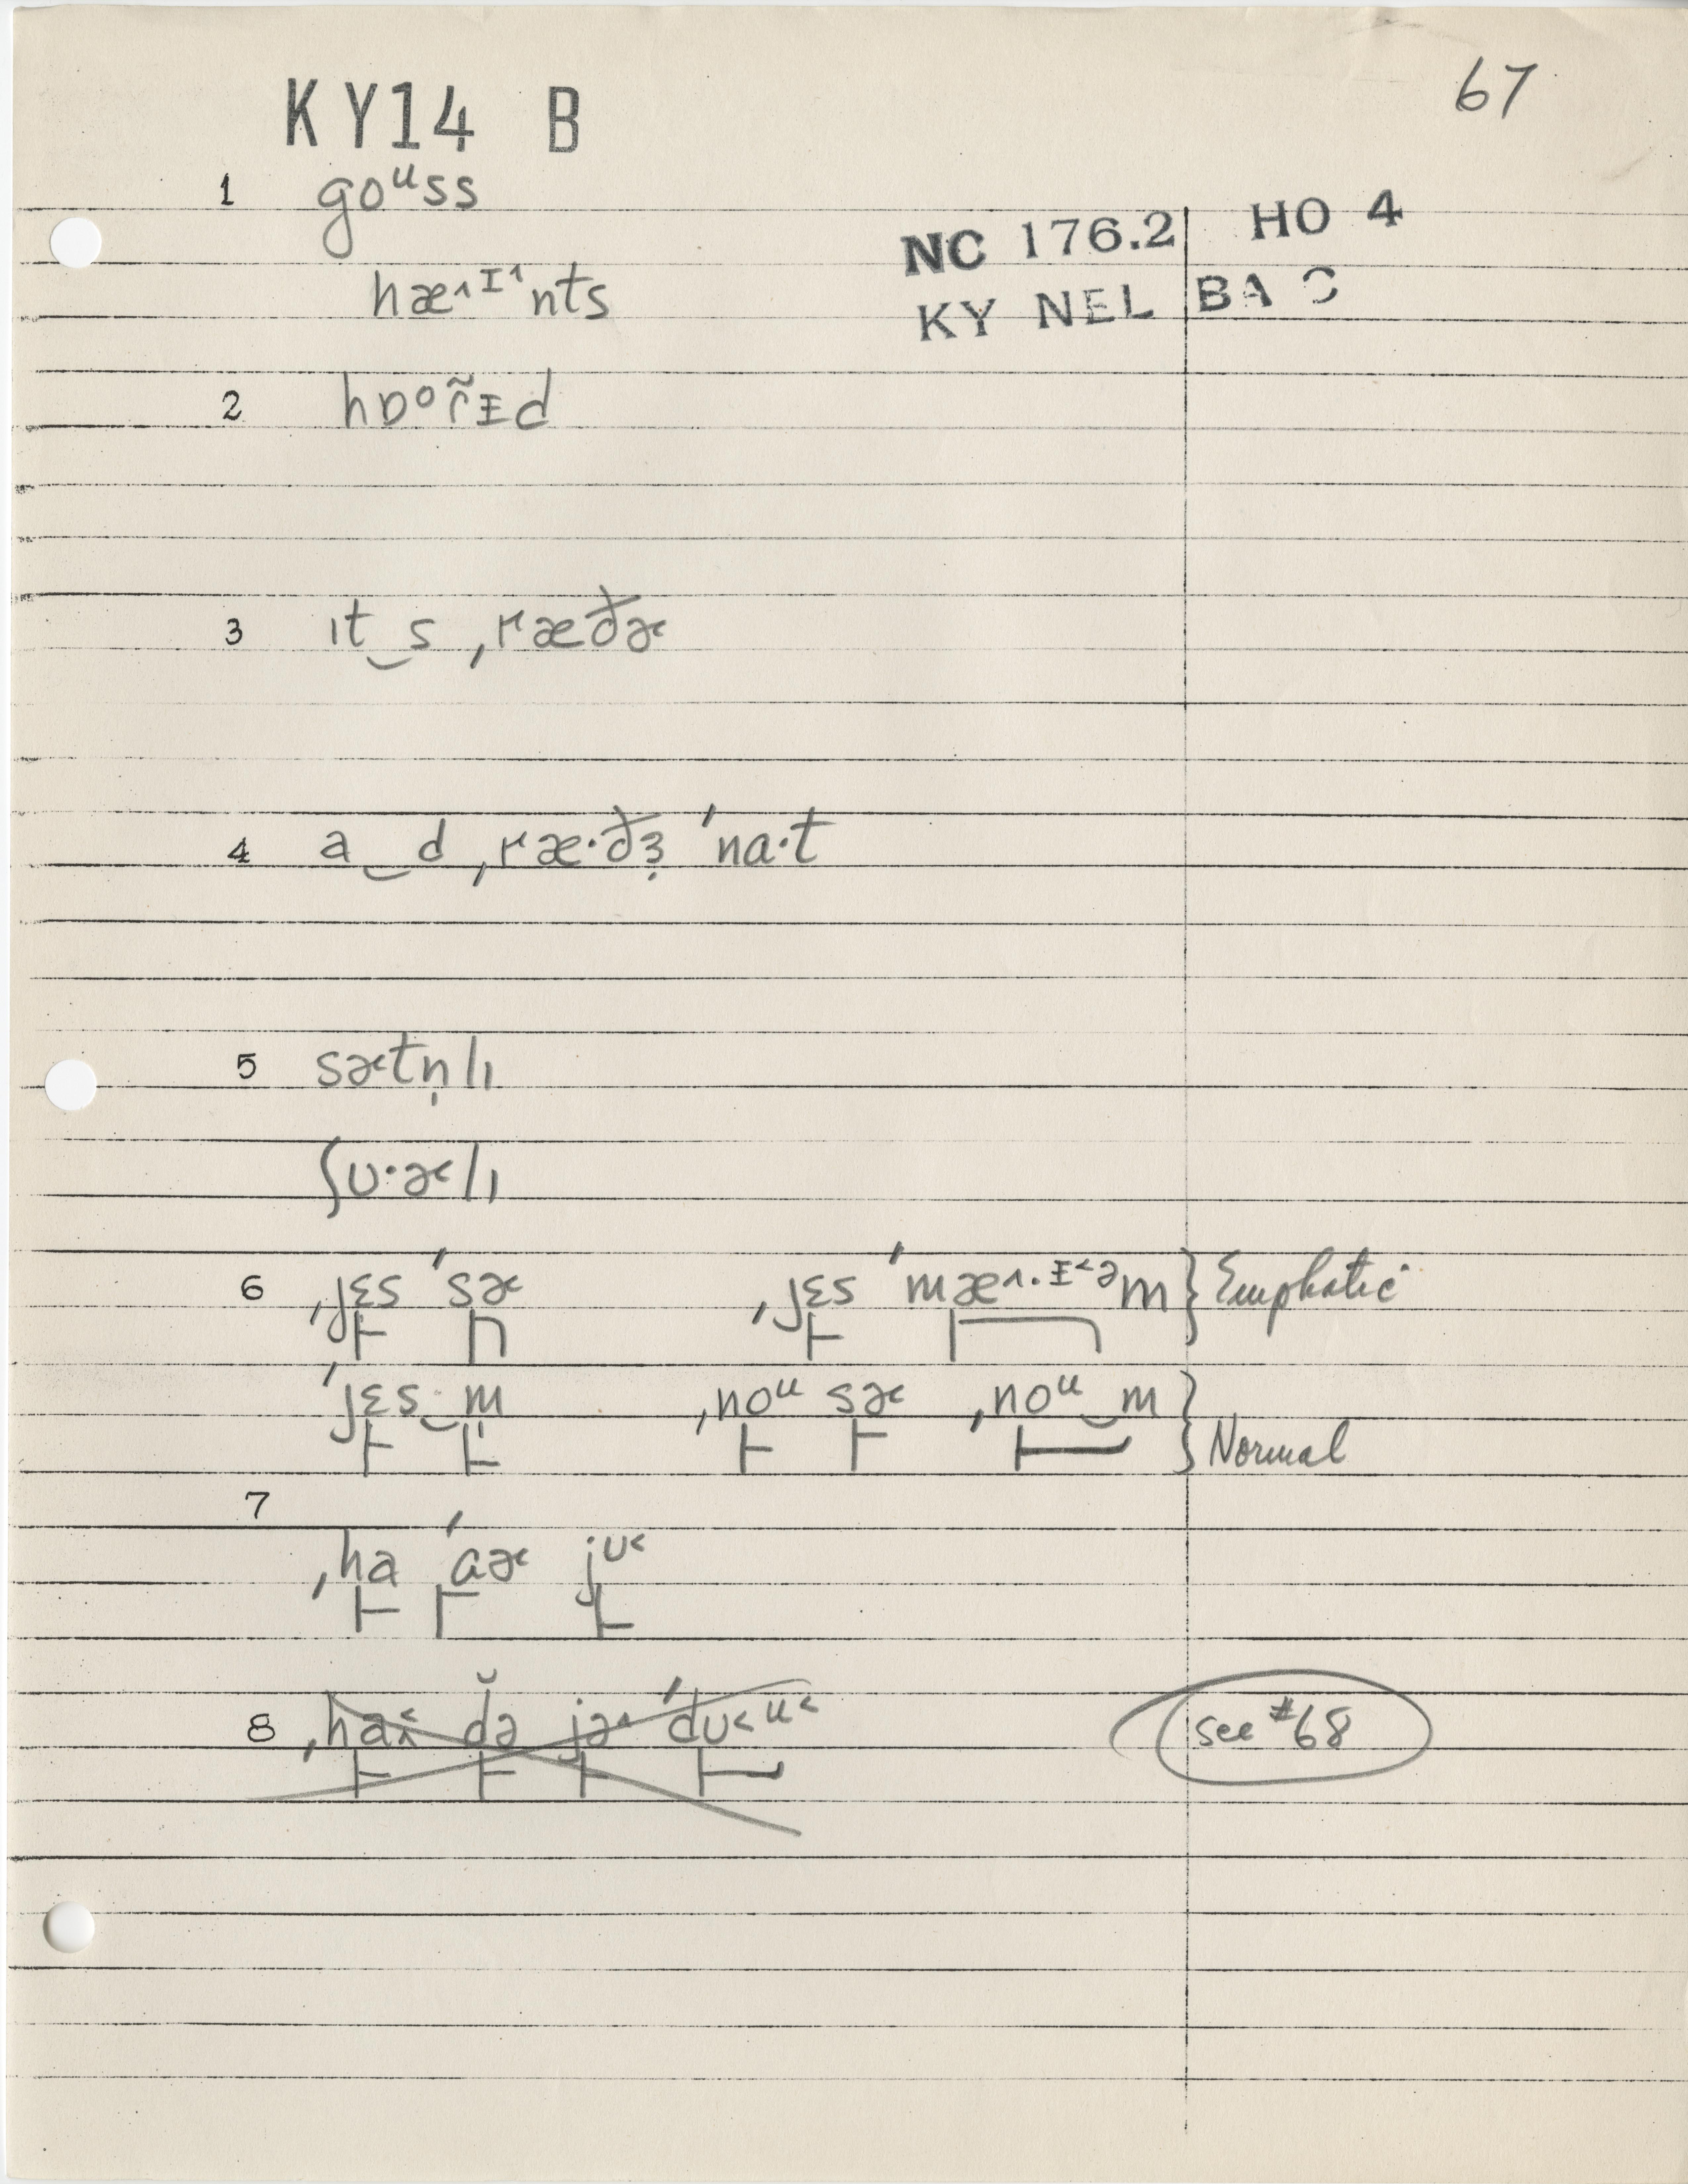 67
KY14 B
1 goᵘss
NC 176.2 HO 4
hæ˄ᶦ˄nts
KY NEL BA
2 hɒᵒr̃ɪd
3 ɪt‿s ˌræðɚ
4 a‿d ˌræ·ðɝ ˈna·t
5 sɚtn̩lɪ
ʃʊ·ɚlɪ
6 ˌjɛs ˈsɚ ˌjɛs ˈmæ˄·ᵻ˂ᵊm } Emphatic
ˈjɛs‿m̩ ˌnoᵘ sɚ ˌnoᵘ‿m } Normal
7
ˌha ˈɑɚ jʊ˂
8 ˌha˄˂ də̆ jə˂ ˈdʊ˂ᵘ˂ see #68